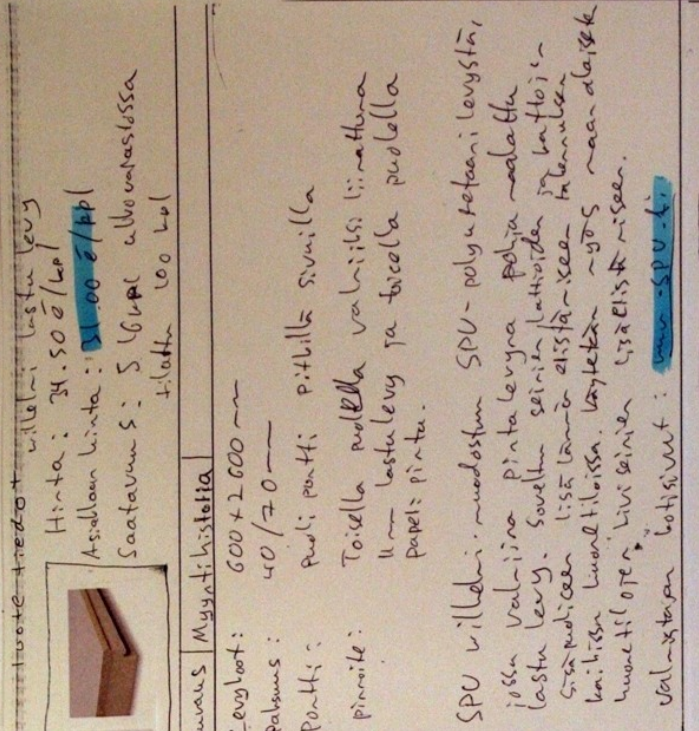 tuote tiedot
willelmi lastu levy
Hinta: 34.50 €/kpl
Asiakkaan hinta: 31.00 €/kpl
Saatavuus: 516 kpl ulkovarastossa
tilattu 100 kpl
kuvaus | Myyntihistoria
Levykoot: 600 x 2600 mm
paksuus: 40/70 mm
Pontti: puoli pontti pitkillä sivuilla
pinnoite: Toisella puolella valmiiksi liimattuna
11 mm lastulevy ja toisella puolella
paperi pinta.
SPU willelmi muodostuu SPU-polyuretaani levystä,
jossa valmiina pintalevynä pohja maalattu
lastu levy. Soveltuu seinien lattioiden ja kattojen
sisäpuoliseen lisä lämmön eristämiseen
kaikissa huonetiloissa. Käytetään myös maan alaisek
huonetilojen kivi seinien lisäeristämiseen.
valmistajan kotisivut: www.SPU.fi